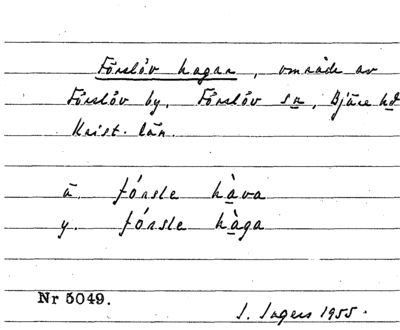 Förslöv hagar, område av
Förslöv by, Förslöv sn, Bjäre hd
Krist. län.
ä. fórsle hàva
y. fórsle hàga
Nr 5049.
I. Ingers 1955.